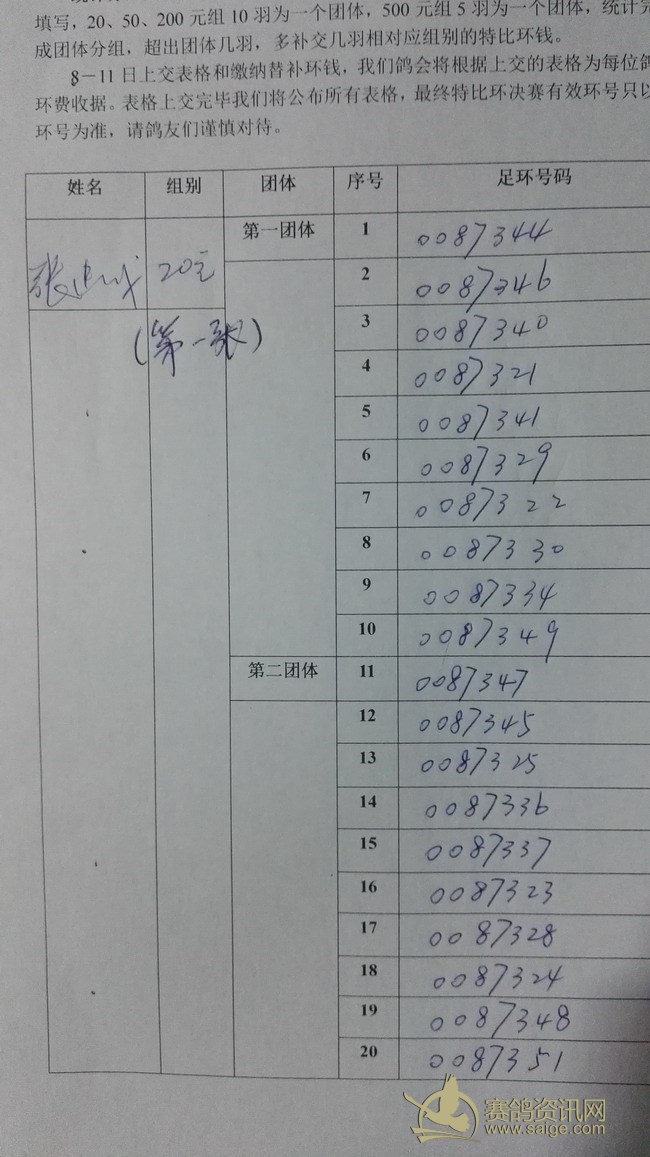 填写，20、50、200 元组 10 羽为一个团体，500 元组 5 羽为一个团体，统计完
成团体分组，超出团体几羽，多补交几羽相对应组别的特比环钱。
8－11 日上交表格和缴纳替补环钱，我们鸽会将根据上交的表格为每位鸽
环费收据。表格上交完毕我们将公布所有表格，最终特比环决赛有效环号只以
环号为准，请鸽友们谨慎对待。
姓名 组别 团体 序号 足环号码
张 20元 第一团体 1 0087344
2 0087346
(第一张) 3 0087340
4 0087321
5 0087341
6 0087329
7 0087322
8 0087330
9 0087334
10 0087349
第二团体 11 0087347
12 0087345
13 0087325
14 0087336
15 0087337
16 0087323
17 0087328
18 0087324
19 0087348
20 0087351
赛鸽资讯网
www.saige.com